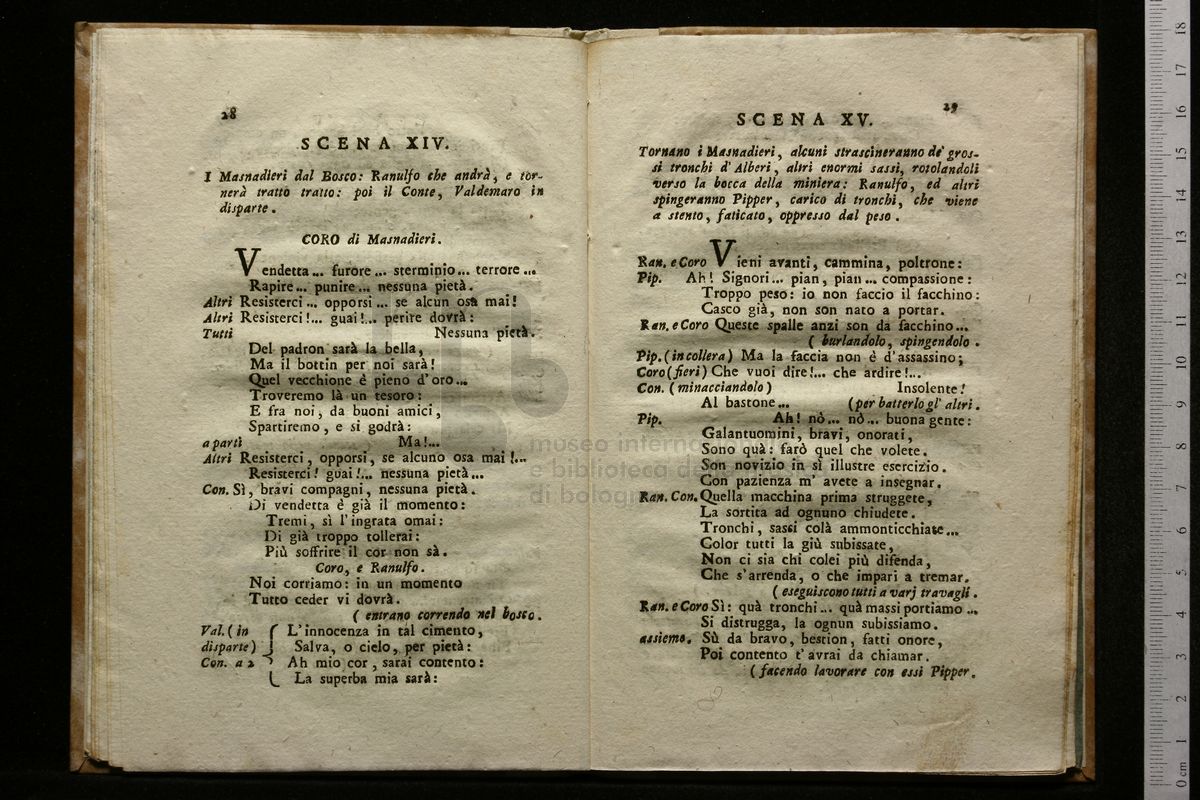 28
SCENA XIV.
I Masnadieri dal Bosco: Ranulfo che andrà, e tor-
nerà tratto tratto: poi il Conte, Valdemaro in
disparte.
CORO di Masnadieri.
Vendetta... furore... sterminio... terrore...
Rapire... punire... nessuna pietà.
Altri Resisterci... opporsi... se alcun osa mai!
Altri Resisterci!... guai!... perire dovrà:
Tutti Nessuna pietà.
Del padron sarà la bella,
Ma il bottin per noi sarà!
Quel vecchione è pieno d'oro...
Troveremo là un tesoro:
E fra noi, da buoni amici,
Spartiremo, e si godrà:
a parti Ma!...
Altri Resisterci, opporsi, se alcuno osa mai!...
Resisterci! guai!... nessuna pietà...
Con. Sì, bravi compagni, nessuna pietà.
Di vendetta è già il momento:
Tremi, sì l'ingrata omai:
Di già troppo tollerai:
Più soffrire il cor non sà.
Coro, e Ranulfo.
Noi corriamo: in un momento
Tutto ceder vi dovrà.
( entrano correndo nel bosco.
Val. ( in L'innocenza in tal cimento,
disparte) Salva, o cielo, per pietà:
Con. a 2 Ah mio cor, sarai contento:
La superba mia sarà:
29
SCENA XV.
Tornano i Masnadieri, alcuni strascineranno de' gros-
si tronchi d'Alberi, altri enormi sassi, rotolandoli
verso la bocca della miniera: Ranulfo, ed altri
spingeranno Pipper, carico di tronchi, che viene
a stento, faticato, oppresso dal peso.
Ran. e Coro Vieni avanti, cammina, poltrone:
Pip. Ah! Signori... pian, pian... compassione:
Troppo peso: io non faccio il facchino:
Casco già, non son nato a portar.
Ran. e Coro Queste spalle anzi son da facchino...
( burlandolo, spingendolo.
Pip. (in collera) Ma la faccia non è d'assassino;
Coro (fieri) Che vuoi dire!... che ardire!...
Con. ( minacciandolo ) Insolente!
Al bastone... (per batterlo gl' altri.
Pip. Ah! nò... nò... buona gente:
Galantuomini, bravi, onorati,
Sono quà: farò quel che volete.
Son novizio in sì illustre esercizio.
Con pazienza m' avete a insegnar.
Ran. Con. Quella macchina prima struggete,
La sortita ad ognuno chiudete.
Tronchi, sassi colà ammonticchiate...
Color tutti la giù subissate,
Non ci sia chi colei più difenda,
Che s'arrenda, o che impari a tremar.
( eseguiscono tutti a varj travagli.
Ran. e Coro Sì: quà tronchi... quà massi portiamo...
Si distrugga, la ognun subissiamo.
assieme. Sù da bravo, bestion, fatti onore,
Poi contento t'avrai da chiamar.
( facendo lavorare con essi Pipper.
museo internazionale
e biblioteca della musica
di bologna
0 cm 1 2 3 4 5 6 7 8 9 10 11 12 13 14 15 16 17 18